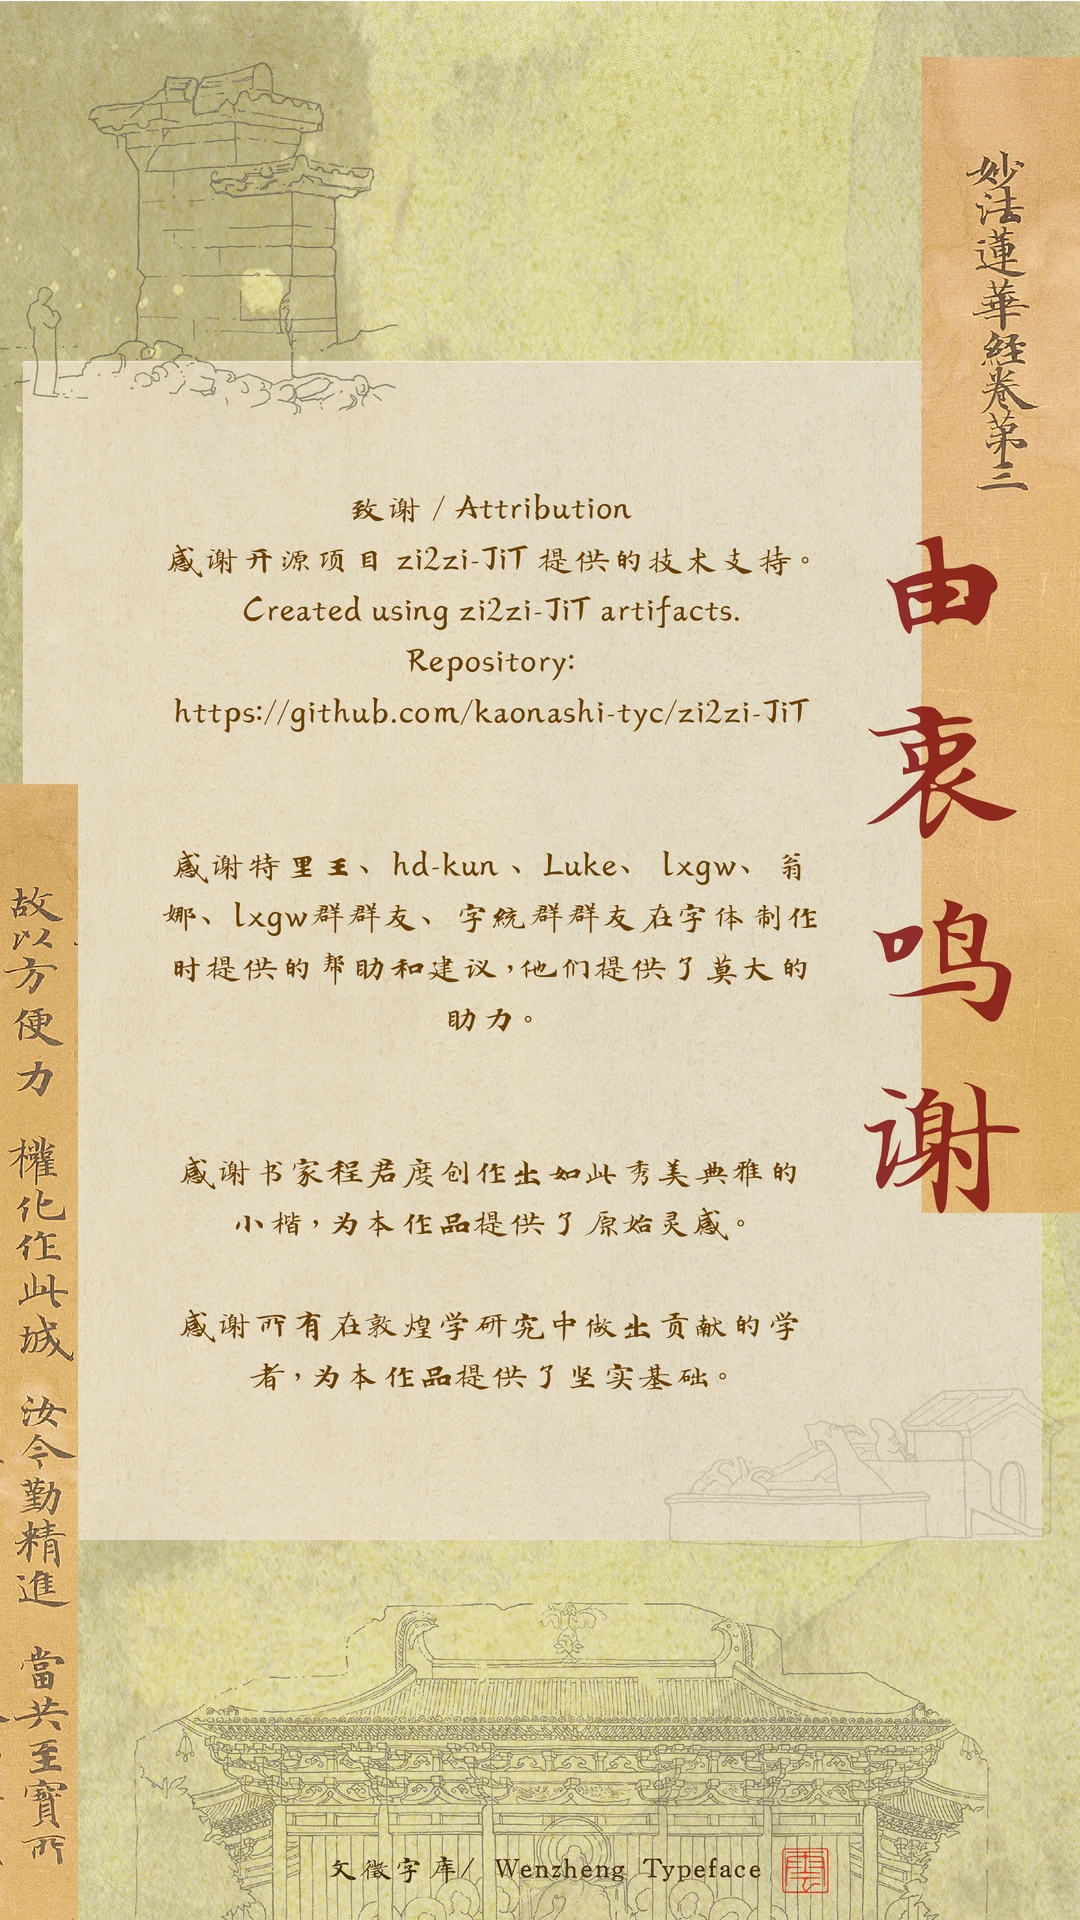 妙法蓮華経卷第三
由衷鸣谢
致谢 / Attribution
感谢开源项目 zi2zi-JiT 提供的技术支持。
Created using zi2zi-JiT artifacts.
Repository:
https://github.com/kaonashi-tyc/zi2zi-JiT
感谢特里王、hd-kun、Luke、lxgw、翁
娜、lxgw群群友、字統群群友在字体制作
时提供的帮助和建议，他们提供了莫大的
助力。
感谢书家程君度创作出如此秀美典雅的
小楷，为本作品提供了原始灵感。
感谢所有在敦煌学研究中做出贡献的学
者，为本作品提供了坚实基础。
故以方便力 權化作此城 汝今勤精進 當共至寶所
文徵字库/ Wenzheng Typeface